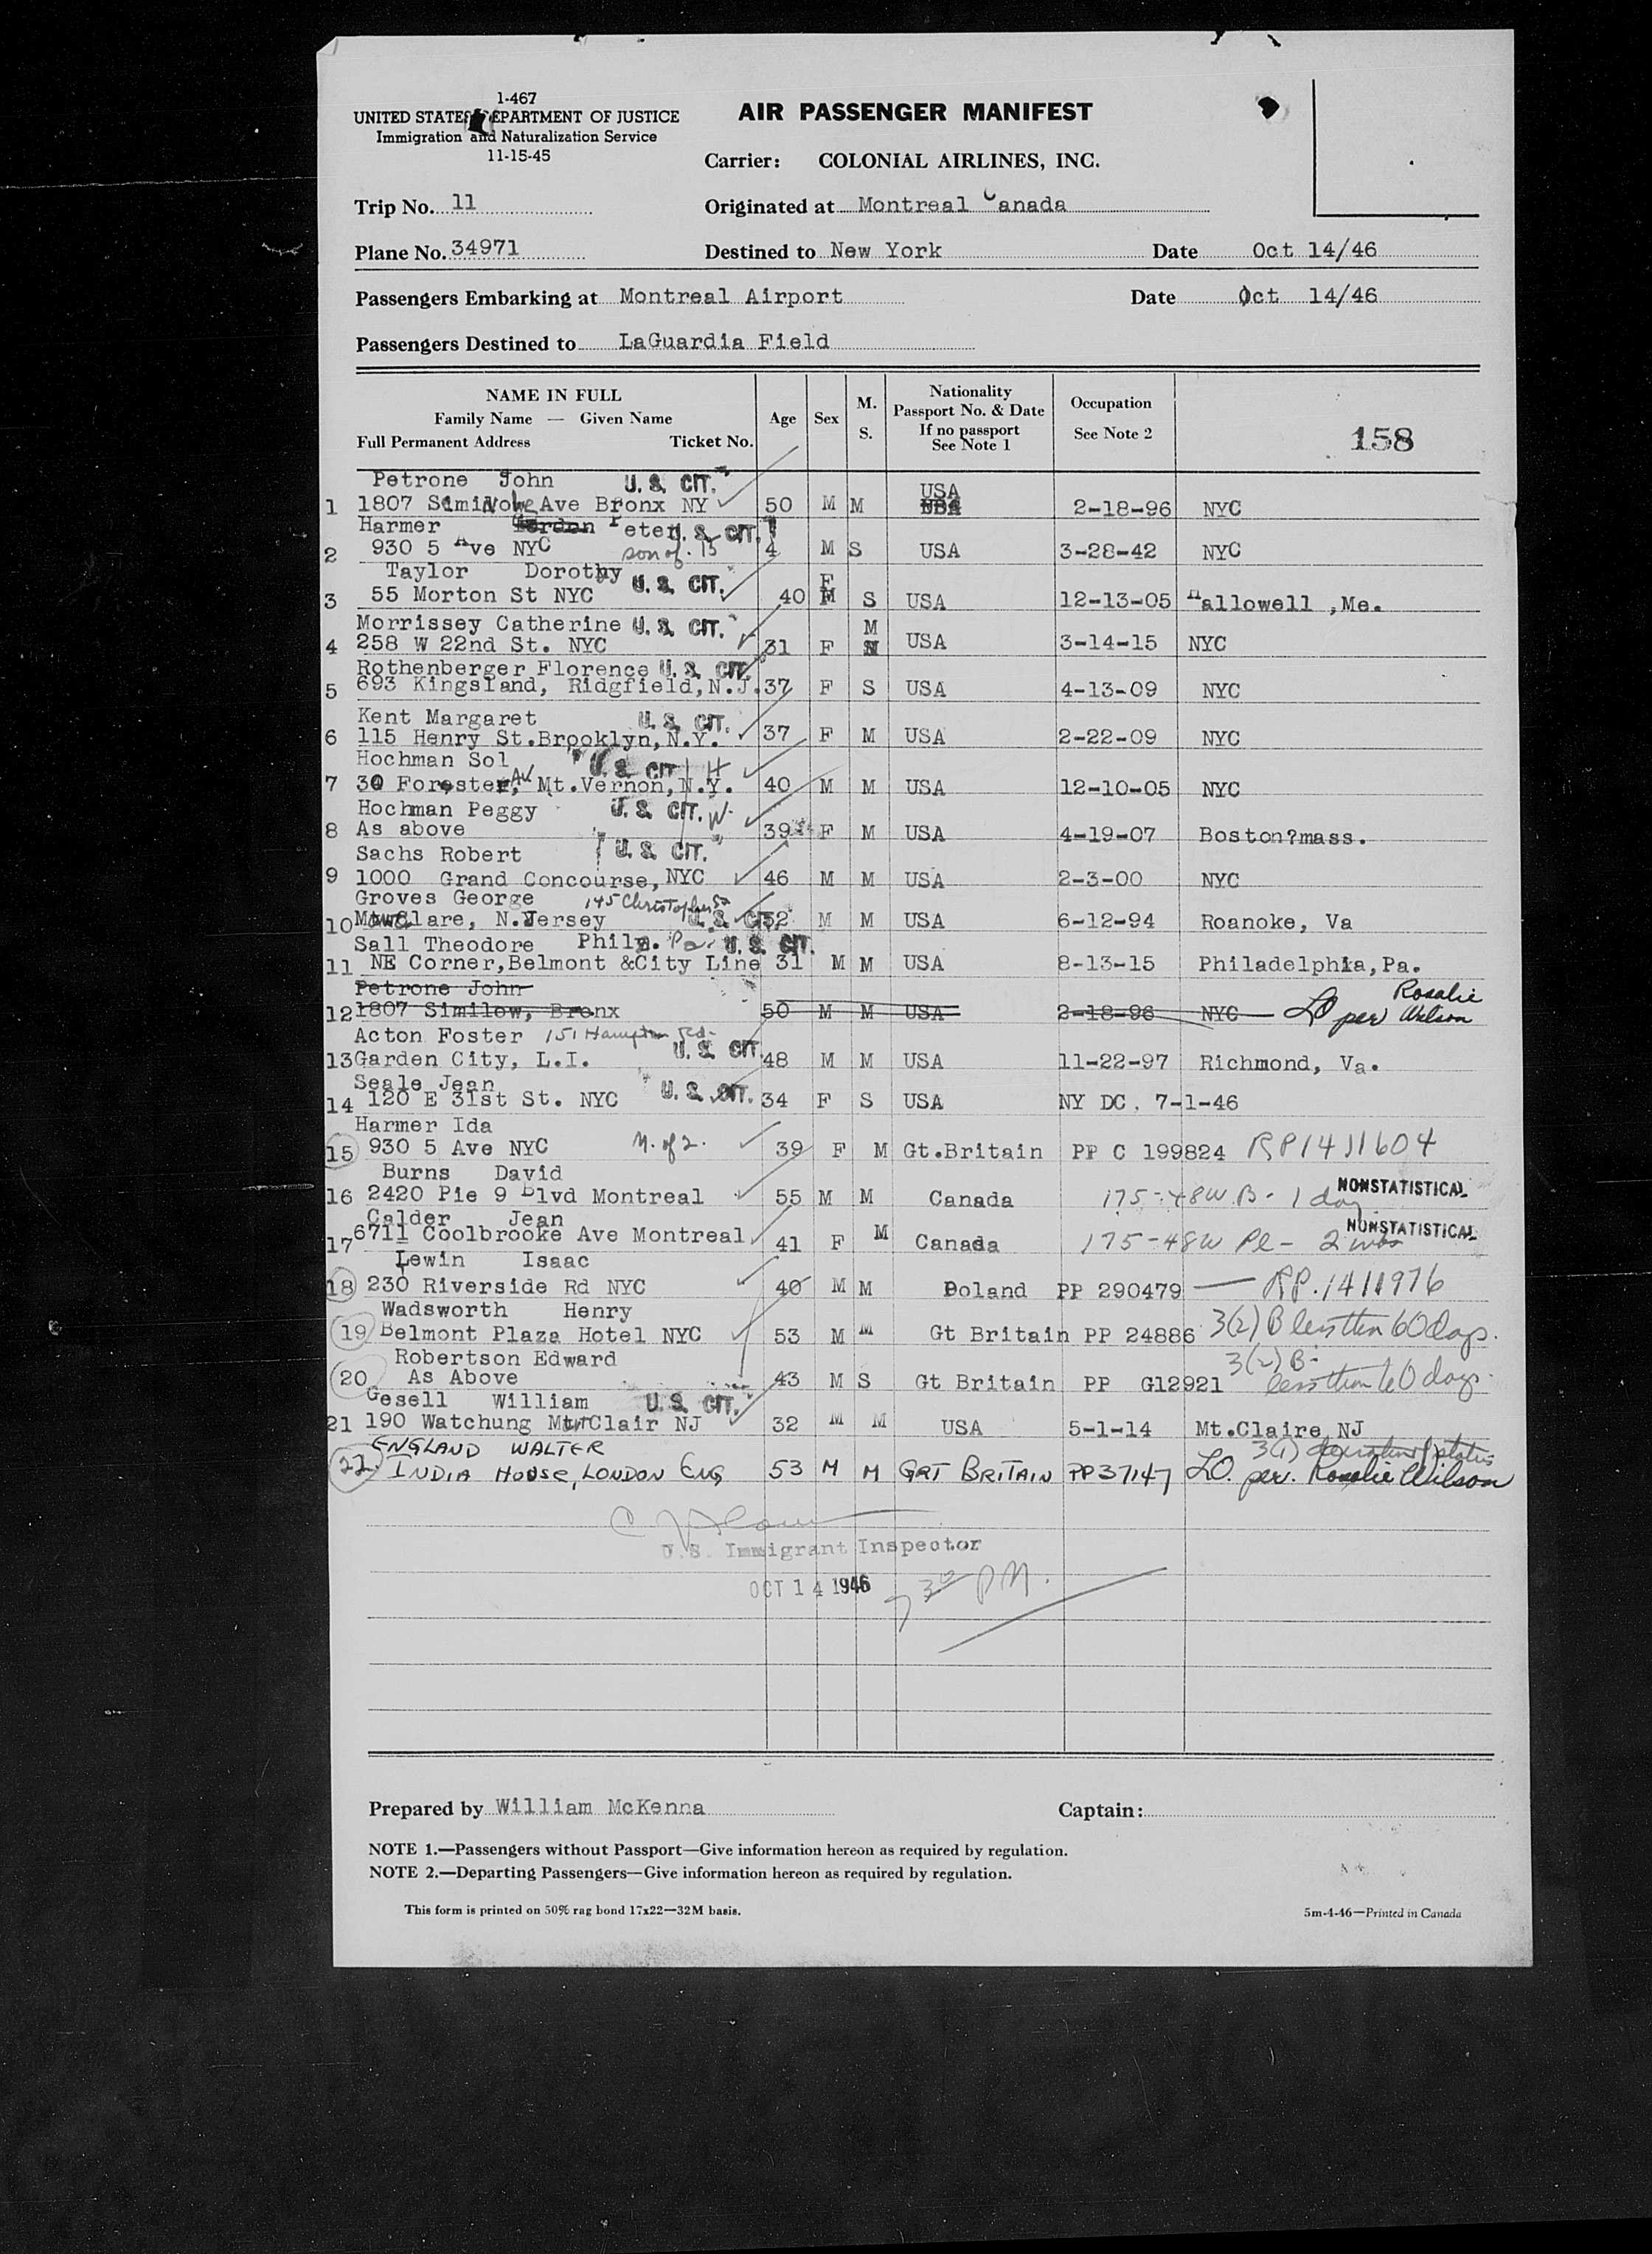 1-467
UNITED STATES DEPARTMENT OF JUSTICE
Immigration and Naturalization Service
11-15-45
AIR PASSENGER MANIFEST
Carrier: COLONIAL AIRLINES, INC.
Trip No. 11 Originated at Montreal Canada
Plane No. 34971 Destined to New York Date Oct 14/46
Passengers Embarking at Montreal Airport Date Oct 14/46
Passengers Destined to LaGuardia Field
NAME IN FULL
Family Name — Given Name
Full Permanent Address Ticket No.
Age Sex M. S.
Nationality
Passport No. & Date
If no passport
See Note 1
Occupation
See Note 2
158
Petrone John U. S. CIT.
1 1807 Ave Bronx NY 50 M M USA 2-18-96 NYC
Harmer Gordon Peter U. S. CIT.
2 930 5 Ave NYC son of 15 4 M S USA 3-28-42 NYC
Taylor Dorothy U. S. CIT.
3 55 Morton St NYC 40 F M S USA 12-13-05 Hallowell ,Me.
Morrissey Catherine U. S. CIT. M
4 258 W 22nd St. NYC 31 F USA 3-14-15 NYC
Rothenberger Florence U. S. CIT.
5 693 Kingsland, Ridgfield,N.J. 37 F S USA 4-13-09 NYC
Kent Margaret U. S. CIT.
6 115 Henry St.Brooklyn,N.Y. 37 F M USA 2-22-09 NYC
Hochman Sol U. S. CIT H
7 30 Forester, Av Mt.Vernon,N.Y. 40 M M USA 12-10-05 NYC
Hochman Peggy U. S. CIT. W.
8 As above 39 F M USA 4-19-07 Boston?mass.
Sachs Robert U. S. CIT.
9 1000 Grand Concourse, NYC 46 M M USA 2-3-00 NYC
Groves George 145 Christopher St
10 Clare, N.Jersey U. S. CIT. 52 M M USA 6-12-94 Roanoke, Va
Sall Theodore Phila. Pa. U. S. CIT.
11 NE Corner,Belmont &City Line 31 M M USA 8-13-15 Philadelphia,Pa.
Petrone John
12 1807 Similow, Bronx 50 M M USA 2-18-96 NYC LO per Rosalie Wilson
Acton Foster 151 Hampton Rd.
13 Garden City, L.I. U. S. CIT. 48 M M USA 11-22-97 Richmond, Va.
Seale Jean
14 120 E 31st St. NYC U. S. CIT. 34 F S USA NY DC. 7-1-46
Harmer Ida
15 930 5 Ave NYC M. of 2. 39 F M Gt.Britain PP C 199824 RP1411604
Burns David
16 2420 Pie 9 Blvd Montreal 55 M M Canada 175-48W B- 1 day NONSTATISTICAL
Calder Jean
17 6711 Coolbrooke Ave Montreal 41 F M Canada 175-48W Pl- 2 wks NONSTATISTICAL
Lewin Isaac
18 230 Riverside Rd NYC 40 M M Poland PP 290479 — RP.1411976
Wadsworth Henry
19 Belmont Plaza Hotel NYC 53 M M Gt Britain PP 24886 3(2) B less than 60 days.
Robertson Edward
20 As Above 43 M S Gt Britain PP G12921 3(2) B- less than 60 days.
Gesell William U. S. CIT.
21 190 Watchung Mt Clair NJ 32 M M USA 5-1-14 Mt.Claire NJ
ENGLAND WALTER
22. INDIA HOUSE, LONDON ENG 53 M M GRT BRITAIN PP37147 LO. per. Rosalie Wilson
3(1) duration of status
U.S. Immigrant Inspector
OCT 14 1946 7 30 P.M.
Prepared by William McKenna Captain:
NOTE 1.—Passengers without Passport—Give information hereon as required by regulation.
NOTE 2.—Departing Passengers—Give information hereon as required by regulation.
This form is printed on 50% rag bond 17x22—32M basis.
5m-4-46—Printed in Canada